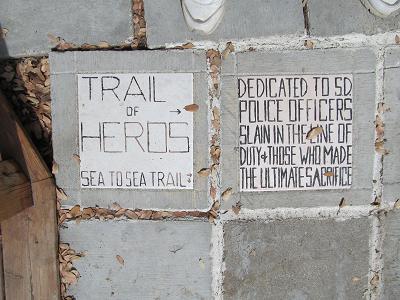 TRAIL
OF →
HEROS
SEA TO SEA TRAIL
DEDICATED TO S.D.
POLICE OFFICERS
SLAIN IN THE LINE OF
DUTY & THOSE WHO MADE
THE ULTIMATE SACRIFICE